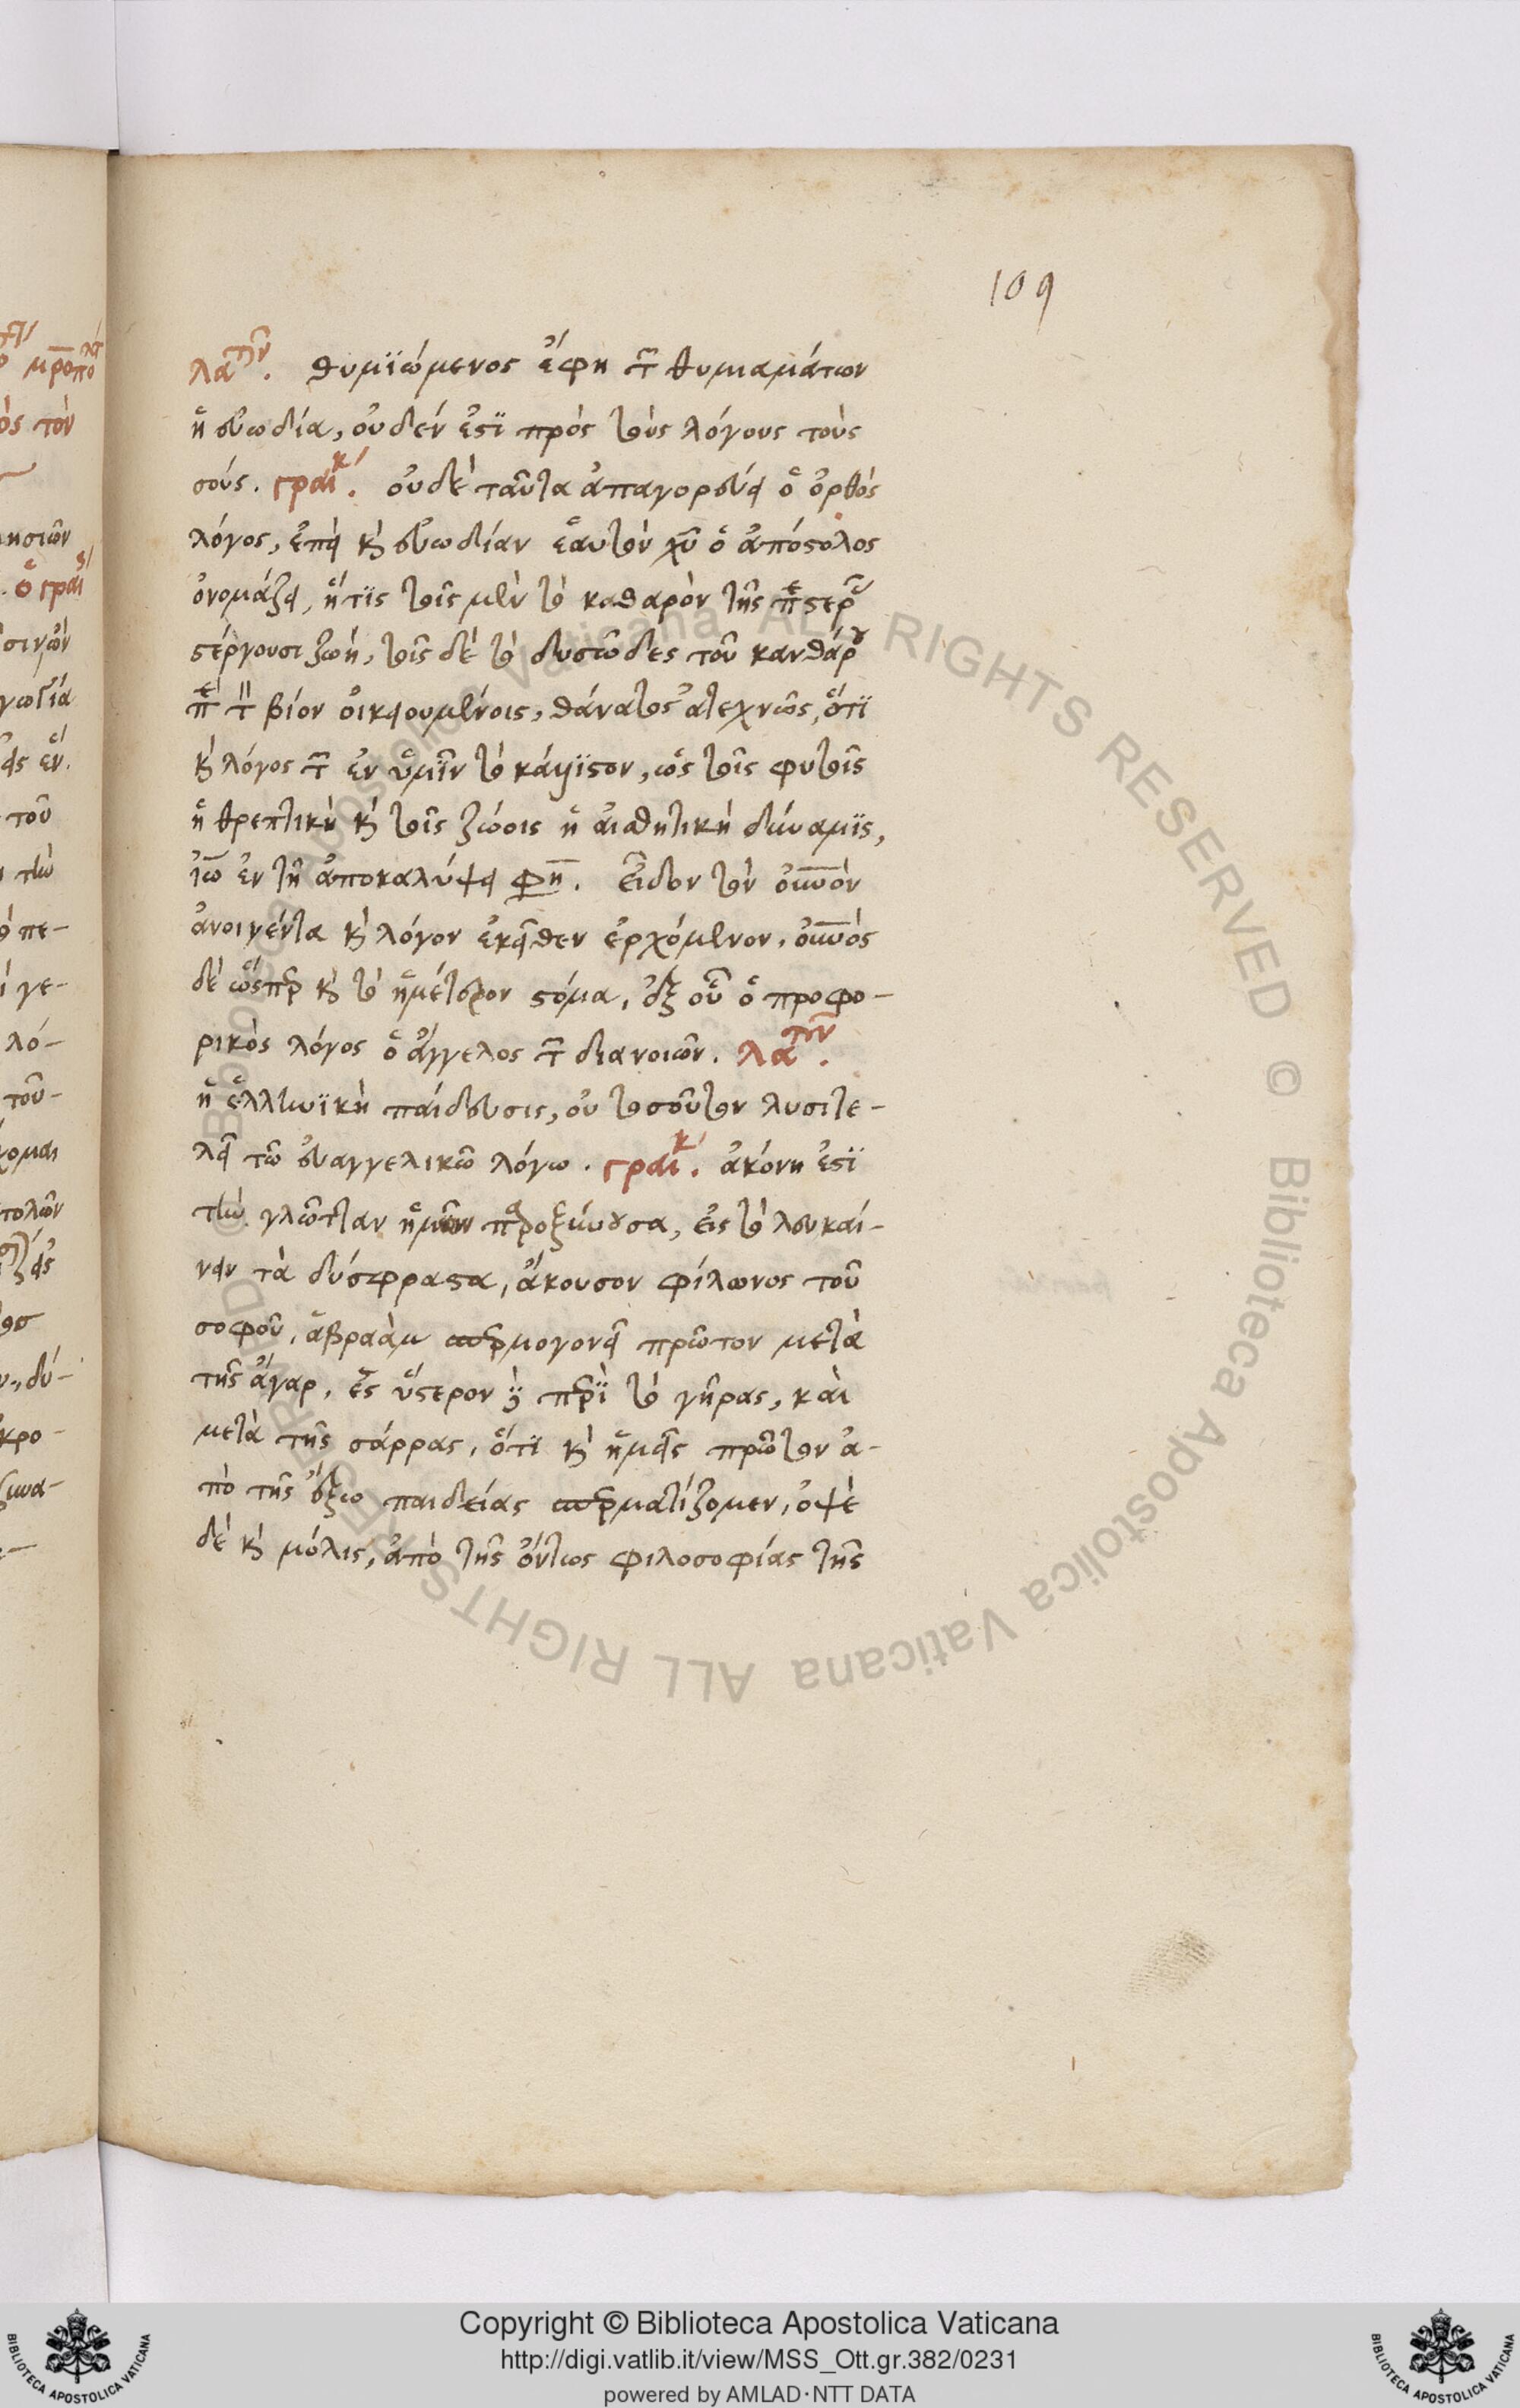 109
λατῖν. θυμϊώμενος ἔφη τῶν θυμιαμάτων
ἡ εὐωδία, οὐδέν ἐστϊ πρὸς τοὺς λόγους τοὺς
σούς. γραικ. οὐδὲ ταῦτα ἀπαγορεύει ὁ ὀρθὸς
λόγος, ἐπεὶ καὶ εὐωδίαν ἑαυτὸν χυ ὁ ἀπόστολος
ὀνομάζει, ἥτϊς τοῖς μὲν τὸ καθαρὸν τῆς περιστερᾶς
στέργουσι ζωή, τοῖς δὲ τὸ δυσῶδες τοῦ κανθάρου
περὶ τὸν βίον οἰκειουμένοις, θάνατος ἀτεχνῶς, ὅτϊ
καὶ λόγος τῶν ἐν ὑμῖν τὸ κάλλϊστον, ὡς τοῖς φυτοῖς
ἡ θρεπτικὴ καὶ τοῖς ζώοις ἡ αἰσθητικὴ δύναμϊς,
ἰω ἐν τῆ ἀποκαλύψει φησὶν. εἶδον τὸν οὐνον
ἀνοιγέντα καὶ λόγον ἐκεῖθεν ἐρχόμενον, οὐνος
δὲ ὥσπερ καὶ τὸ ἡμέτερον στόμα, ἐξ οὗ ὁ προφο-
ρικὸς λόγος ὁ ἄγγελος τῶν διανοιῶν. λατῖν.
ἡ ἑλληνϊκὴ παίδευσις, οὐ τοσοῦτον λυσιτε-
λεῖ τῶ εὐαγγελικῶ λόγω. γραικ. ἀκόνη ἐστϊ
τὴν γλῶτταν ἡμῶν παροξύνουσα, εἰς τὸ λευκαί-
νειν τὰ δύσφραστα, ἄκουσον φίλωνος τοῦ
σοφοῦ, ἁβραὰμ σπερμογονεῖ πρῶτον μετὰ
τῆς ἄγαρ, ἐς ὕστερον δὲ περϊ τὸ γῆρας, καὶ
μετὰ τῆς σάρρας, ὅτϊ καὶ ἡμεῖς πρῶτον ἀ-
πὸ τῆς ἔξω παιδείας σπερματίζομεν, ὀψὲ
δὲ καὶ μόλις, ἀπὸ τῆς ὄντως φιλοσοφίας τῆς
Copyright © Biblioteca Apostolica Vaticana
http://digi.vatlib.it/view/MSS_Ott.gr.382/0231
powered by AMLAD·NTT DATA